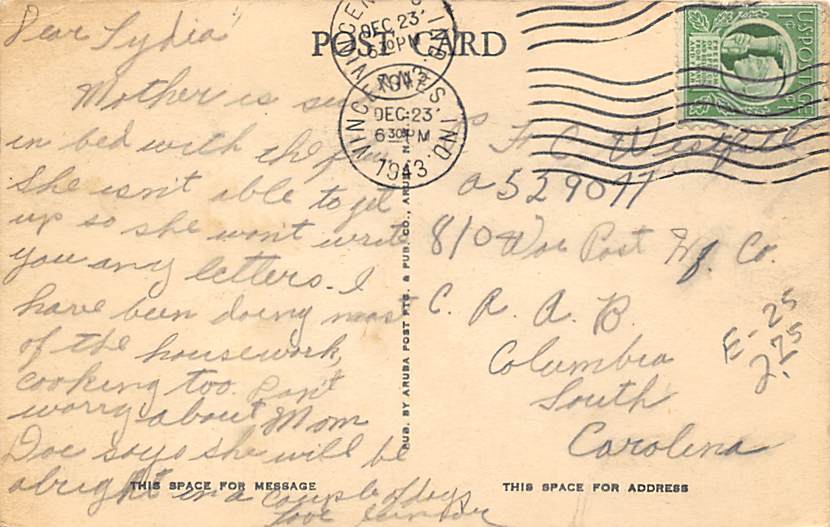 Dear Lydia
Mother is
in bed with the flu
She isn't able to get
up so she won't write
you any letters. I
have been doing most
of the housework,
cooking too. Don't
worry about Mom
Doc says she will be
alright in a couple of days
love
POST CARD
VINCENNES, IND.
DEC 23
6 30 PM
1943
VINCENNES, IND.
DEC 23
6 30 PM
1943
U.S. POSTAGE
1¢
F C
A529011
810 Wac Post Hq. Co.
C. A. A. B.
Columbia
South
Carolina
E-25
2.75
PUB. BY ARUBA POST PTG. & PUB. CO., ARUBA
THIS SPACE FOR MESSAGE
THIS SPACE FOR ADDRESS